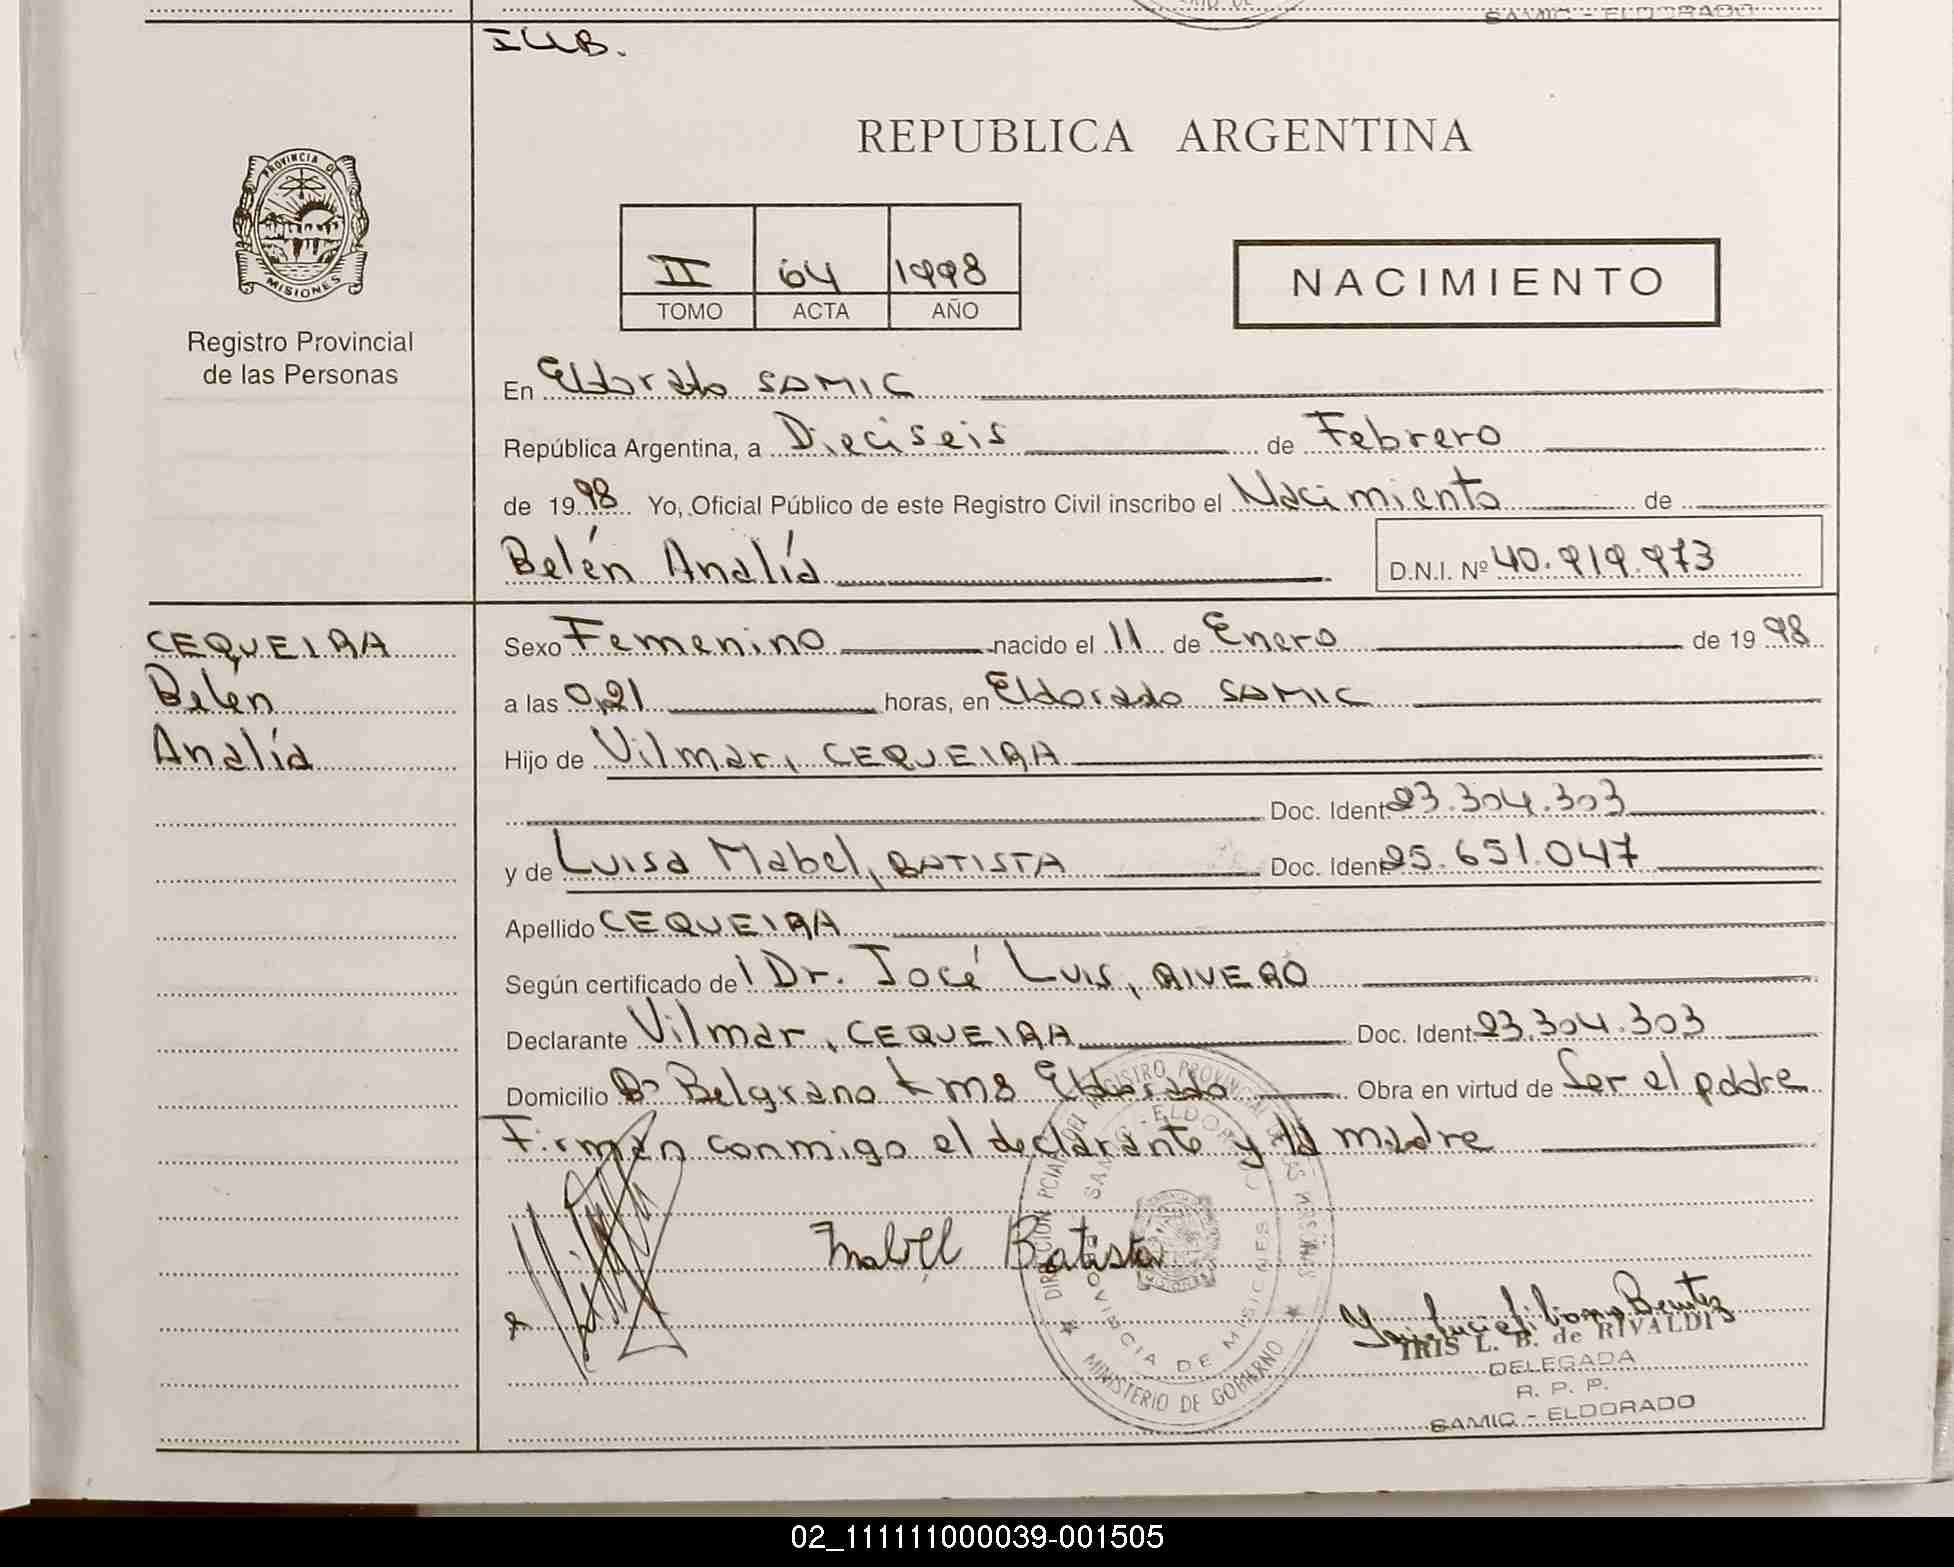 SAMIC - ELDORADO
REPUBLICA ARGENTINA
PROVINCIA DE
MISIONES
Registro Provincial
de las Personas
II 64 1998
TOMO ACTA AÑO
NACIMIENTO
En Eldorado SAMIC
República Argentina, a Dieciseis de Febrero
de 1998 Yo, Oficial Público de este Registro Civil inscribo el Nacimiento de
Belén Analía D.N.I. Nº 40.919.973
CEQUEIRA
Belén
Analía
Sexo Femenino nacido el 11 de Enero de 1998
a las 0,21 horas, en Eldorado SAMIC
Hijo de Vilmar, CEQUEIRA
Doc. Ident. 23.304.303
y de Luisa Mabel, BATISTA Doc. Ident. 25.651.047
Apellido CEQUEIRA
Según certificado de l Dr. José Luis, RIVERO
Declarante Vilmar, CEQUEIRA Doc. Ident. 23.304.303
Domicilio Bº Belgrano km 8 Eldorado Obra en virtud de Ser el padre
Firman conmigo el declarante y la madre
Mabel Batista
DIRECCION PCIAL DEL REGISTRO PROVINCIAL DE LAS PERSONAS
SAMIC - ELDORADO
PROVINCIA DE MISIONES
MINISTERIO DE GOBIERNO
IRIS L. B. de RIVALDI
DELEGADA
R. P. P.
SAMIC - ELDORADO
02_111111000039-001505